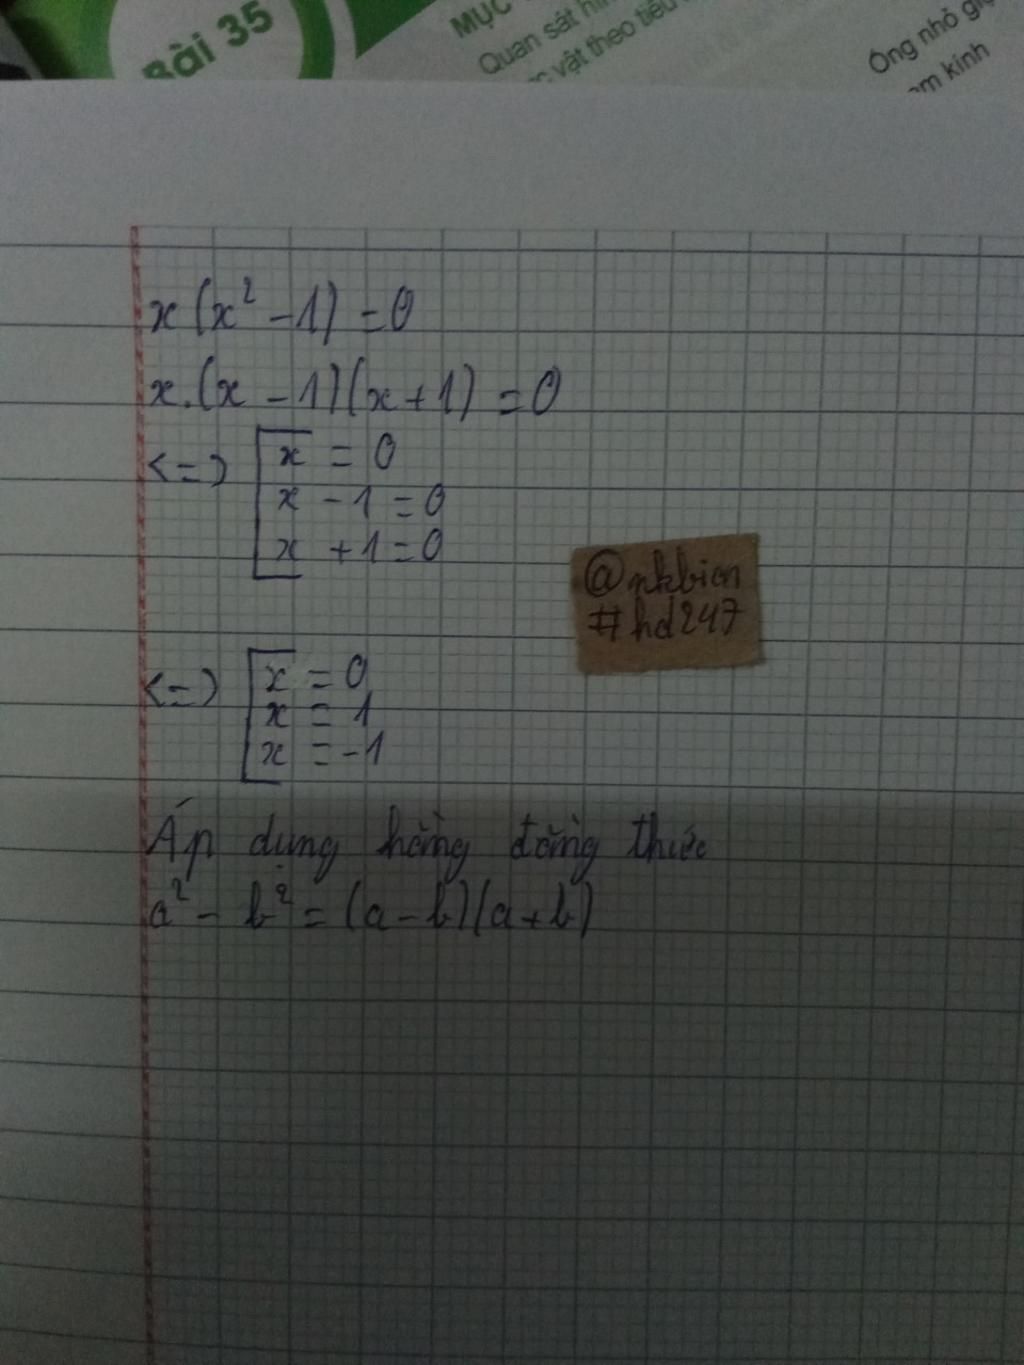 Bài 35
MỤC
Quan sát hìn
vật theo tiêu
Ông nhỏ giọ
kính
x(x² - 1) = 0
x.(x - 1)(x + 1) = 0
<=> [x = 0
x - 1 = 0
x + 1 = 0
@nkbien
#hd247
<=> [x = 0
x = 1
x = -1
Áp dụng hằng đẳng thức
a² - b² = (a - b)(a + b)